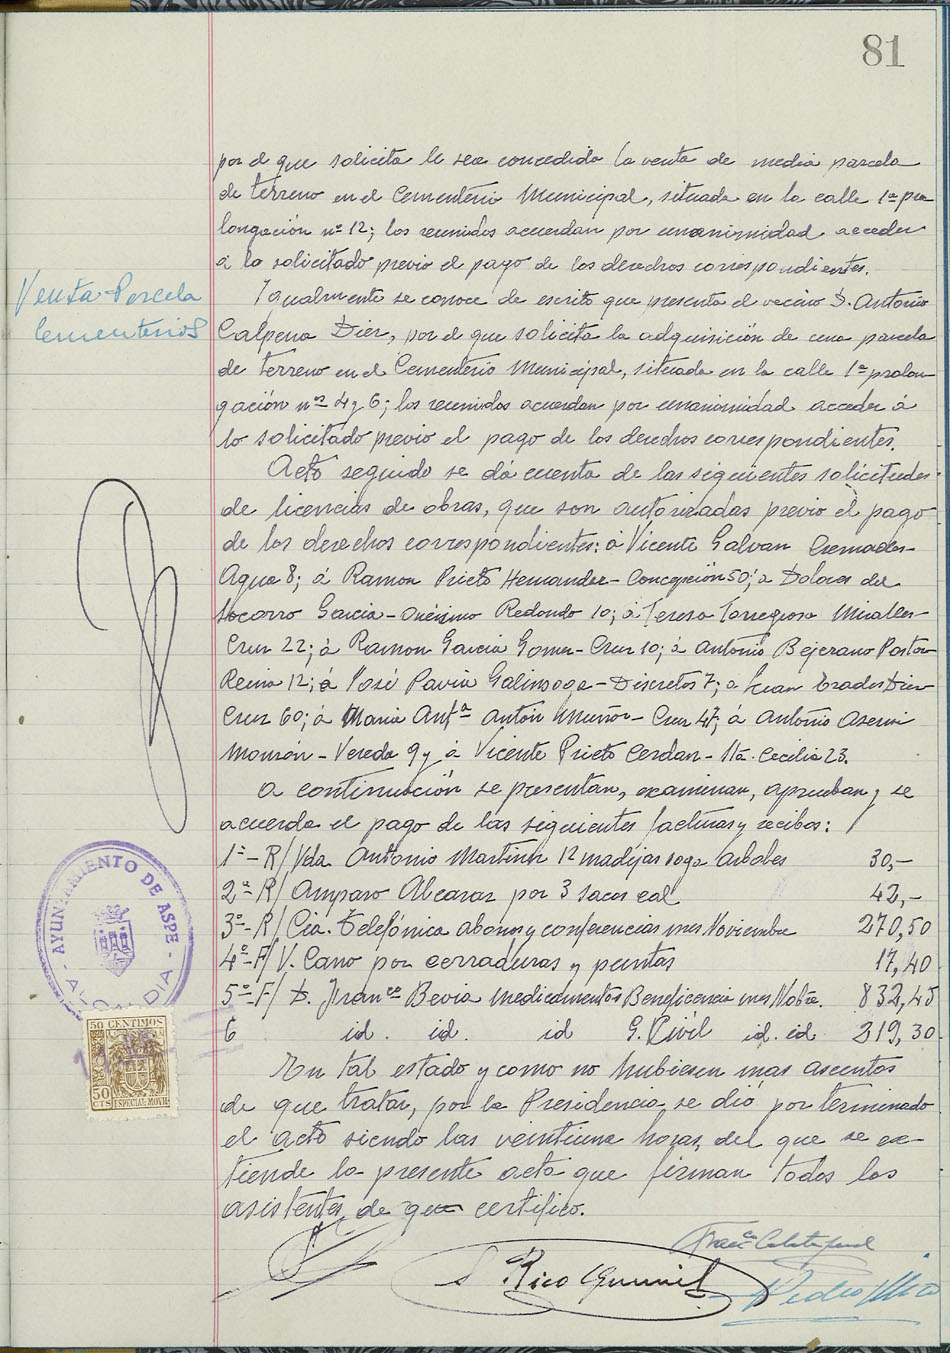 81
por el que solicita le sea concedida la venta de media parcela
de terreno en el Cementerio Municipal, situada en la calle 1ª pro
longación nº 12; los reunidos acuerdan por unanimidad acceder
a lo solicitado previo el pago de los derechos correspondientes.
Venta Parcela
Cementerios
Igualmente se conoce de escrito que presenta el vecino D. Antonio
Calpena Dier, por el que solicita la adquisición de una parcela
de terreno en el Cementerio Municipal, situada en la calle 1ª prolon
gación nos 4 y 6; los reunidos acuerdan por unanimidad acceder á
lo solicitado previo el pago de los derechos correspondientes.
Acto seguido se dá cuenta de las siguientes solicitudes
de licencias de obras, que son autorizadas previo el pago
de los derechos correspondientes: á Vicente Galvan Cremades-
Agua 8; á Ramon Prieto Hernandez - Concepción 50; á Dolores del
Socorro Garcia - Onésimo Redondo 10; á Teresa Torregrosa Miralles
Cruz 22; á Ramon Garcia Gomez - Cruz 10; á Antonio Bejerano Pastor
Reina 12; á José Pavia Galinsoga - Discretos 7; a Juan Prades Dier
Cruz 60; á Maria Antª Antón Muñoz - Cruz 47; á Antonio Asensi
Monzón - Vereda 9 y á Vicente Prieto Cerdan - Stá. Cecilia 23.
A continuación se presentan, examinan, aprueban y se
acuerda el pago de las siguientes facturas y recibos:
1º - R/ Vda. Antonio Martinez 12 madejas soga arboles 30,-
2º - R/ Amparo Alcaraz por 3 sacos cal 42,-
3º - R/ Cia. Telefónica abonos y conferencias mes Noviembre 270,50
4º - F/ V. Cano por cerraduras y puntas 17,40
5º - F/ D. Franco Bevia medicamentos Beneficencia mes Nobre. 832,45
6 id. id. id G. Civil id. id 219,30
En tal estado y como no hubiesen mas asuntos
de que tratar, por la Presidencia se dió por terminado
el acto siendo las veintiuna horas, del que se ex-
tiende la presente acta que firman todos los
asistentes, de que certifico.
AYUNTAMIENTO DE ASPE
ALCALDIA
50 CENTIMOS
50 CTS
ESPECIAL MOVIL
Franco Calatayud
Rico
Pedro Mico